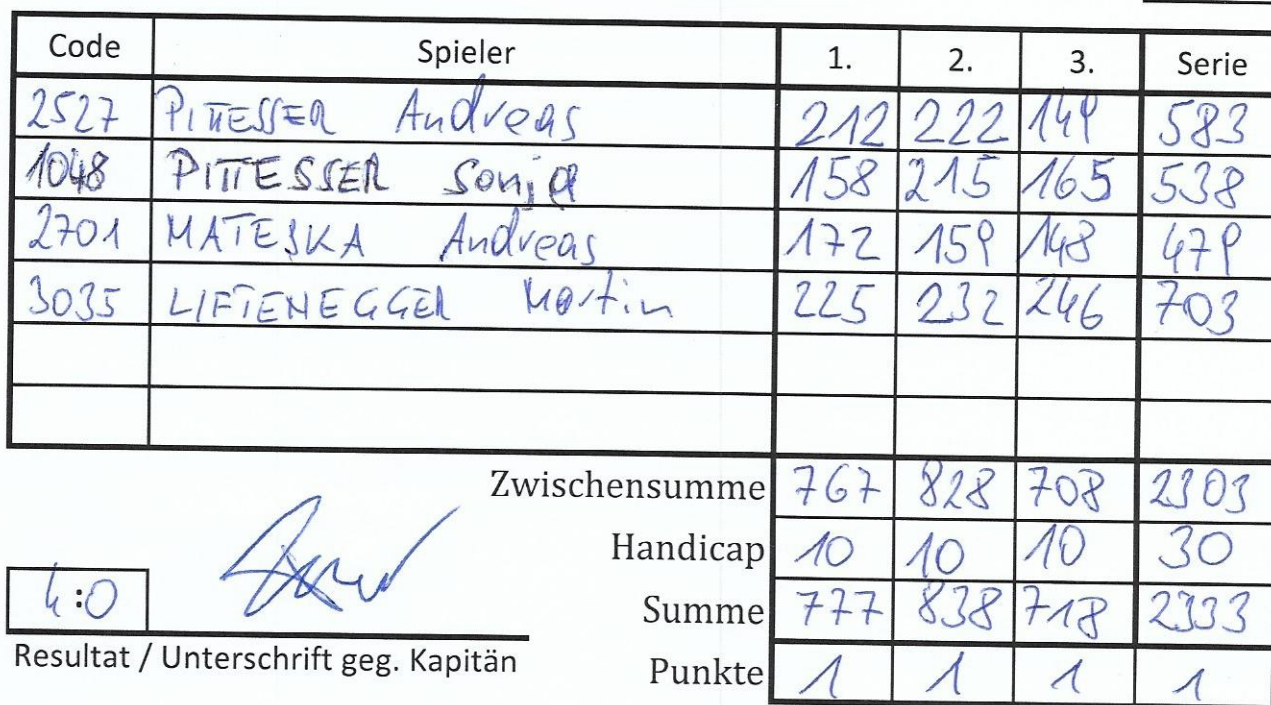 Code Spieler 1. 2. 3. Serie
2527 PITTESSER Andreas 212 222 149 583
1048 PITTESSER Sonja 158 215 165 538
2701 MATESKA Andreas 172 159 148 479
3035 LIFTENEGGER Martin 225 232 246 703
Zwischensumme 767 828 708 2303
Handicap 10 10 10 30
4:0 Summe 777 838 718 2333
Resultat / Unterschrift geg. Kapitän Punkte 1 1 1 1